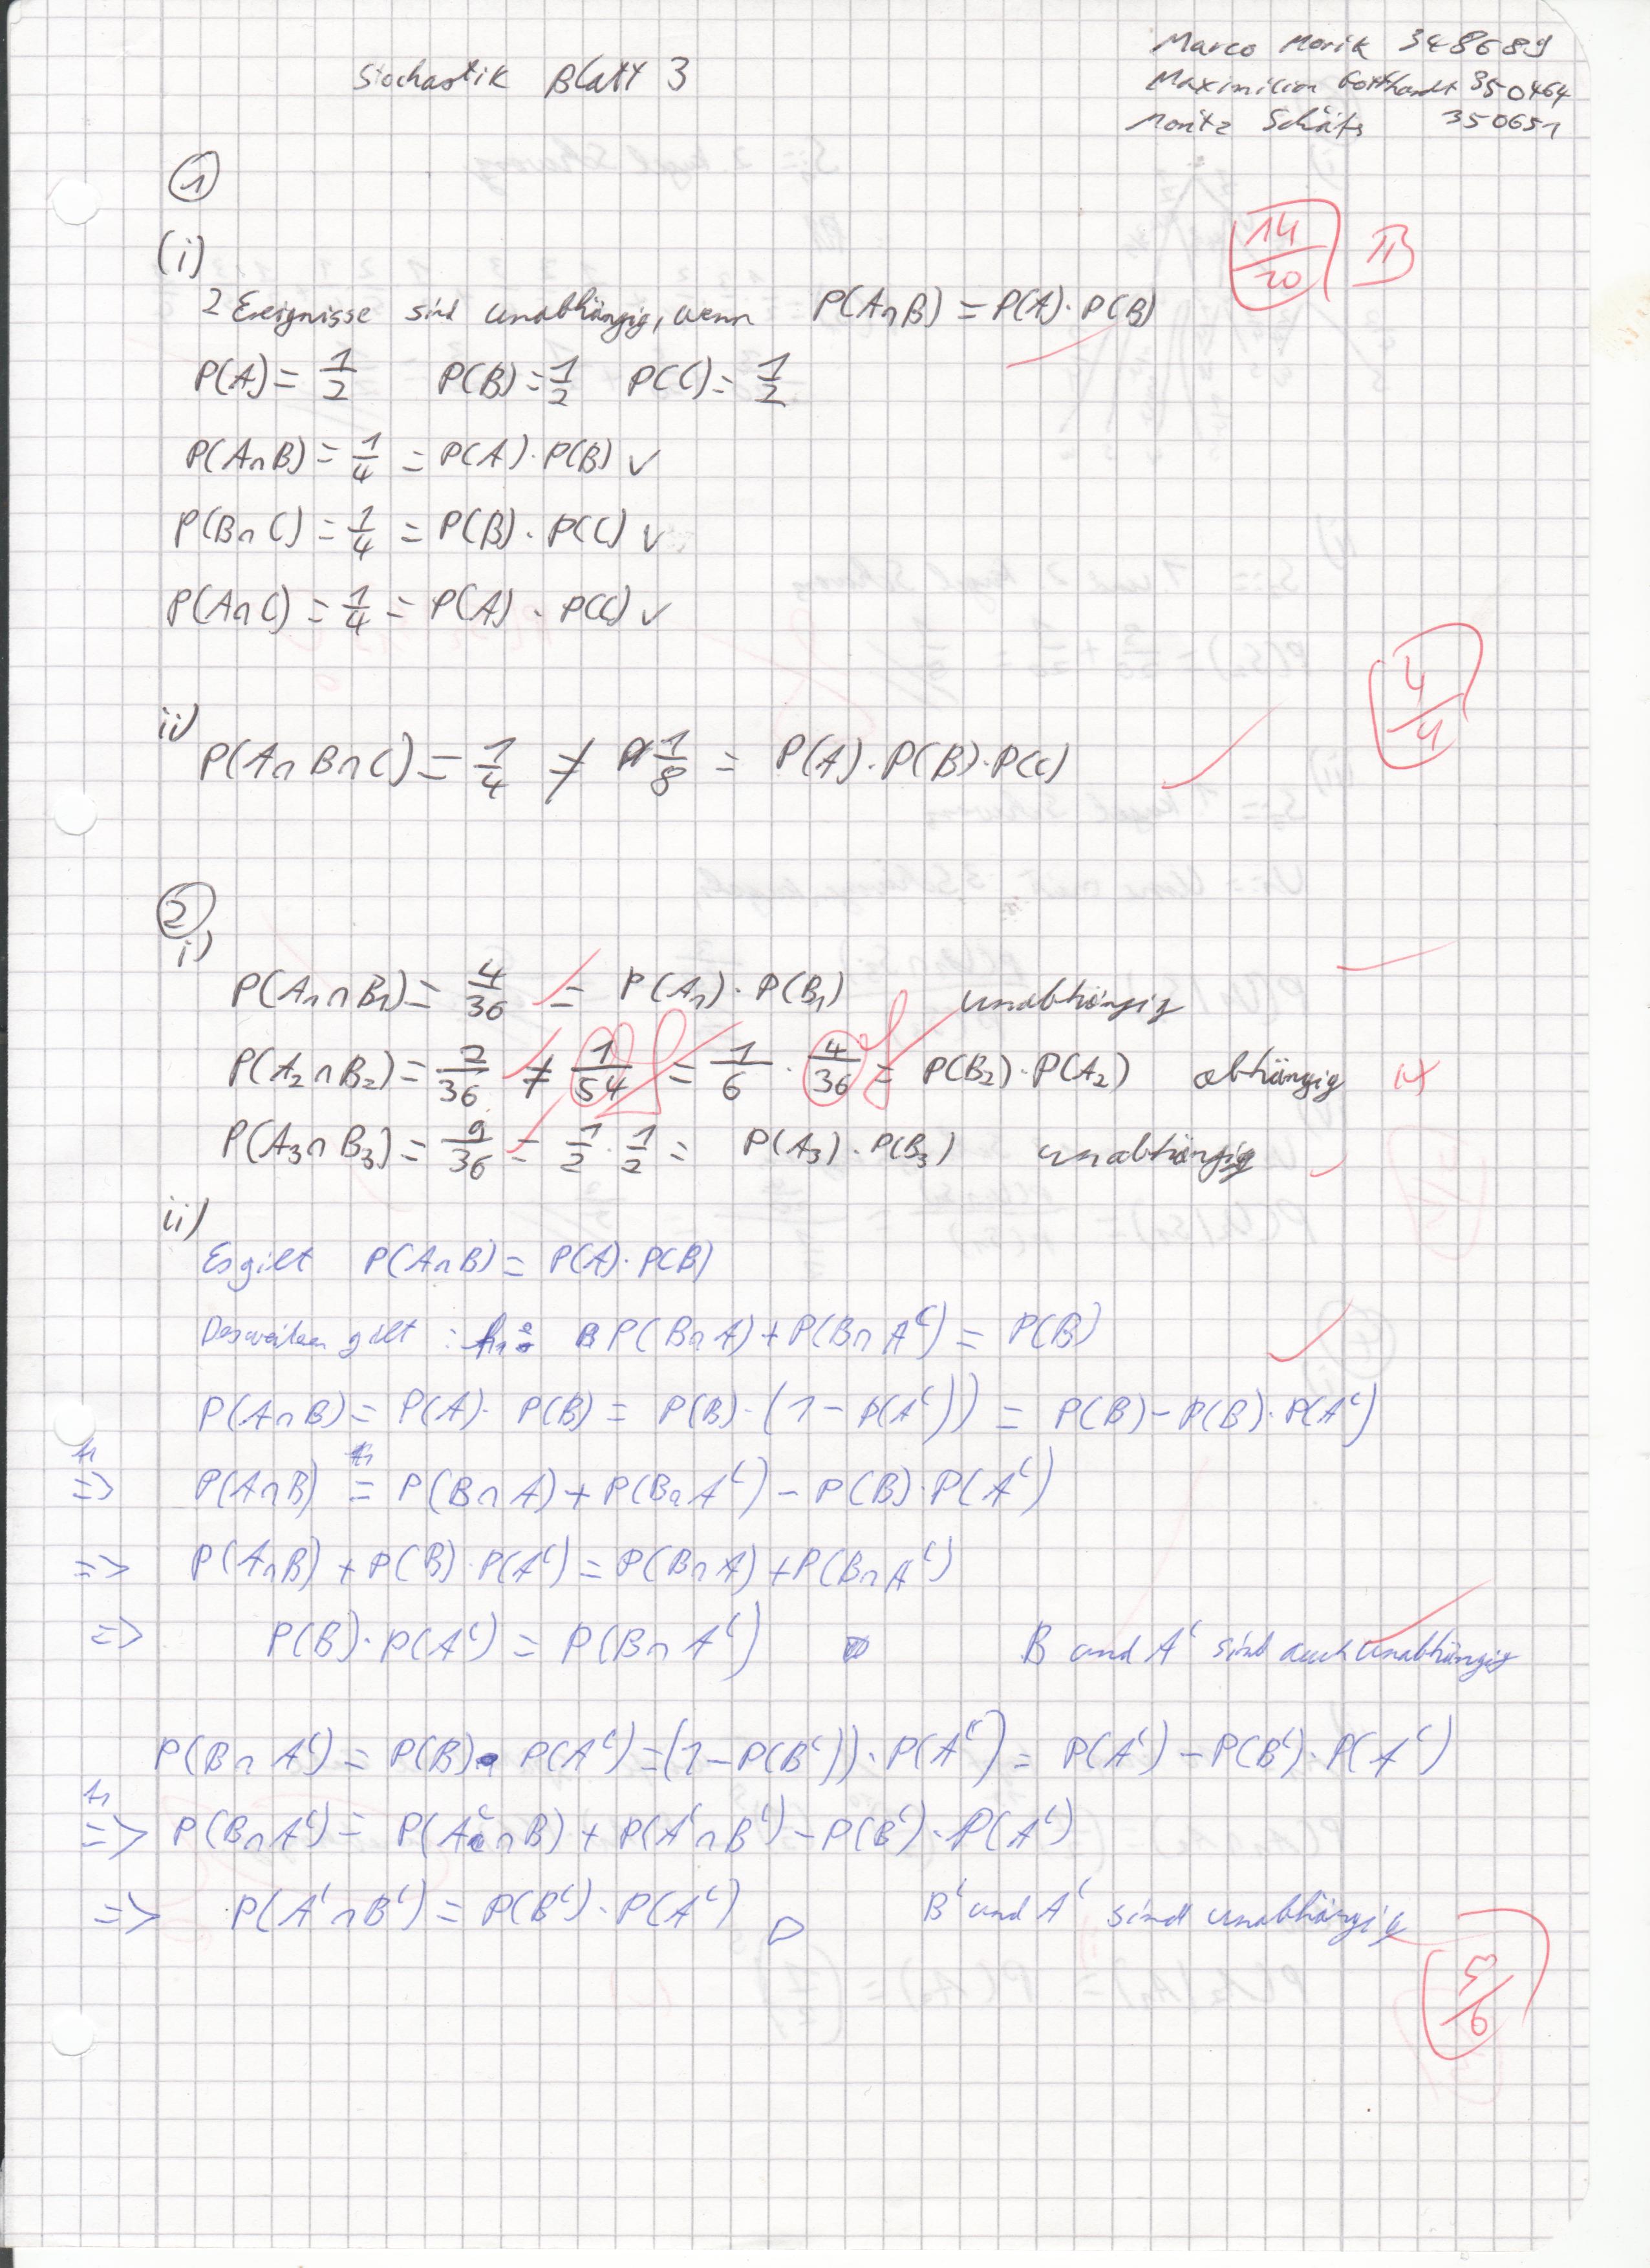 Marco Morik 348689
Stochastik Blatt 3
Maximilian Gotthardt 350464
Moritz 350651
1
(i)
14/20 B
2 Ereignisse sind unabhängig, wenn P(A∩B) = P(A)·P(B)
P(A) = 1/2 P(B) = 1/2 P(C) = 1/2
P(A∩B) = 1/4 = P(A)·P(B) ✓
P(B∩C) = 1/4 = P(B)·P(C) ✓
P(A∩C) = 1/4 = P(A)·P(C) ✓
4/4
ii)
P(A∩B∩C) = 1/4 ≠ 1/8 = P(A)·P(B)·P(C)
2
i)
P(A₁∩B₁) = 4/36 = P(A₁)·P(B₁) unabhängig
P(A₂∩B₂) = 2/36 ≠ 1/54 = 1/6 · 4/36 = P(B₂)·P(A₂) abhängig
P(A₃∩B₃) = 9/36 = 1/2 · 1/2 = P(A₃)·P(B₃) unabhängig
ii)
Es gilt P(A∩B) = P(A)·P(B)
Desweiteren gilt: P(B∩A) + P(B∩Aᶜ) = P(B)
P(A∩B) = P(A)·P(B) = P(B)·(1−P(Aᶜ)) = P(B)−P(B)·P(Aᶜ)
=> P(A∩B) = P(B∩A) + P(B∩Aᶜ) − P(B)·P(Aᶜ)
=> P(A∩B) + P(B)·P(Aᶜ) = P(B∩A) + P(B∩Aᶜ)
=> P(B)·P(Aᶜ) = P(B∩Aᶜ) B und Aᶜ sind auch unabhängig
P(B∩Aᶜ) = P(B)·P(Aᶜ) = (1−P(Bᶜ))·P(Aᶜ) = P(Aᶜ) − P(Bᶜ)·P(Aᶜ)
=> P(B∩Aᶜ) = P(Aᶜ∩B) + P(Aᶜ∩Bᶜ) − P(Bᶜ)·P(Aᶜ)
=> P(Aᶜ∩Bᶜ) = P(Bᶜ)·P(Aᶜ) □ Bᶜ und Aᶜ sind unabhängig
5/6